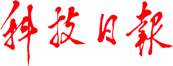 科技日報